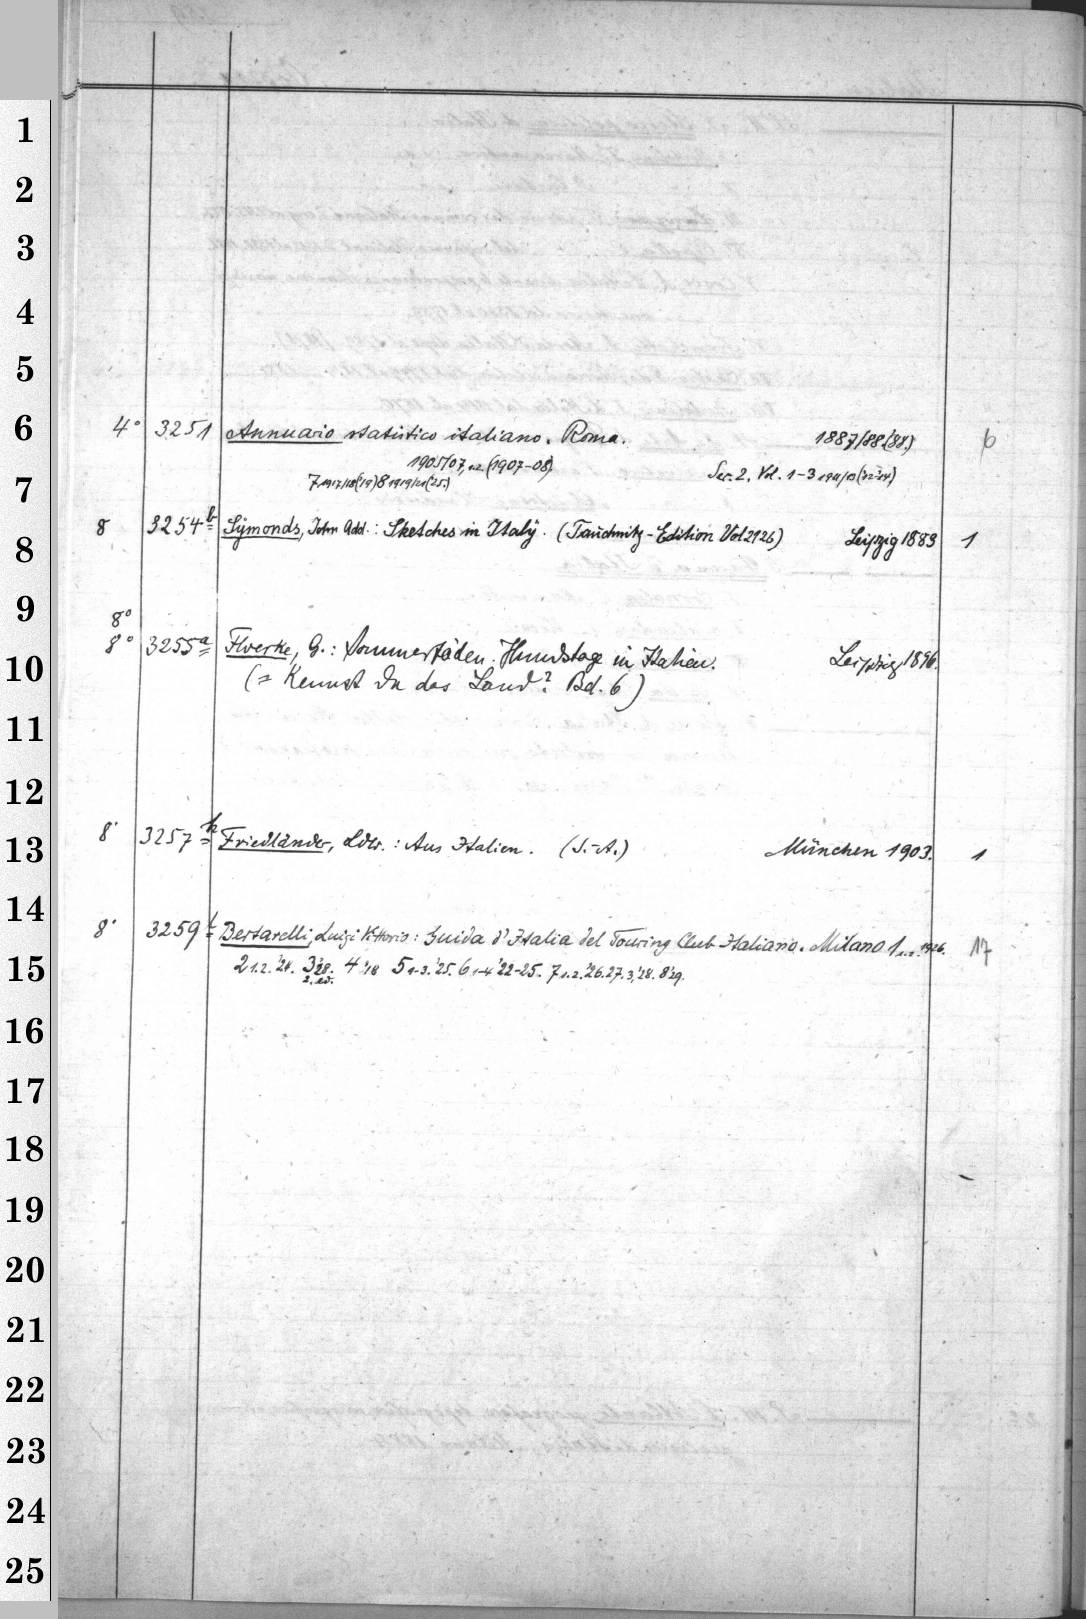 1
2
3
4
5
6
7
8
9
10
11
12
13
14
15
16
17
18
19
20
21
22
23
24
25
4° 3251 Annuario statistico italiano. Roma. 1887/88.(88.) 6
1905/07, 1.2. (1907-08) Ser. 2. Vol. 1-3 1911/13 ('12-'14)
7 1917/18 ('19) 8 1919/21 ('25.)
8 3254 b Symonds, John Add.: Sketches in Italy. (Tauchnitz-Edition Vol 2126) Leipzig 1883 1
8°
8° 3255 a Floerke, G.: Sommerfäden. Hundstage in Italien. Leipzig 1896.
(= Kennst Du das Land? Bd. 6)
8° 3257 h Friedländer, Ldw.: Aus Italien. (S.-A.) München 1903. 1
8° 3259 Bertarelli, Luigi Vittorio: Guida d'Italia del Touring Club Italiano. Milano 1 1.2. 1926. 17
2 1.2. '24. 3 '28. 4 '18 5 1-3. '25. 6 1-4 '22-25. 7 1.2. '26.27. 3, '28. 8 '29.
2. ed.